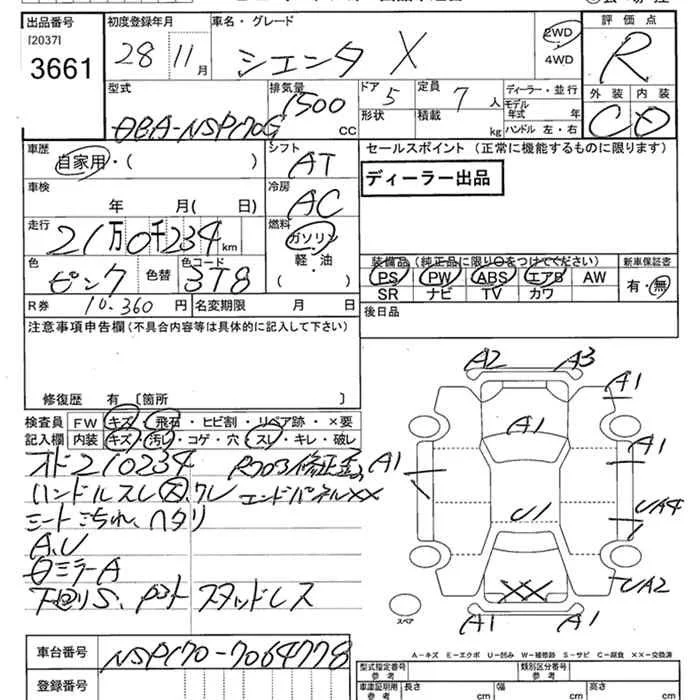 出品番号 初度登録年月 車名・グレード 評価点
[2037]
3661 28 11月 シエンタ X 2WD・4WD R
外装 内装
C D
型式 排気量 ドア 定員 ディーラー・並行
DBA-NSP170G 1500 CC 5 7 人 モデル年式 年
形状 積載 kg ハンドル 左・右
車歴 シフト セールスポイント (正常に機能するものに限ります)
自家用・( ) AT
ディーラー出品
車検 冷房
年 月( 日) AC
走行 燃料
21万0千234km ガソリン
軽・油
( )
色 色替 色コード 装備品(純正品に限り○をつけてください) 新車保証書
ピンク 3T8 PS PW ABS エアB AW 有・無
SR ナビ TV カワ
R券 10,360 円 名変期限 月 日
後日品
注意事項申告欄(不具合内容等は具体的に記入して下さい)
修復歴 有〔箇所 〕
検査員 FW キズ・飛石・ヒビ割・リペア跡・×要
記入欄 内装 キズ・汚レ・コゲ・穴・スレ・キレ・破レ
オド210234
ハンドルスレ大,ワレ エンドパネル××
シート汚れ、ヘタリ
A.U
ミラーA
S、 スタッドレス
A2 A3
A1
A1
A1
A1
U1 UA4
XX UA2
A1 A1
スペア
A-キズ E-エクボ U-凹み W-補修跡 S-サビ C-腐食 ××-交換済
車台番号 NSP170-7064778
登録番号
型式指定番号 参考 類別区分番号 参考
車庫証明用 参考 長さ cm 幅 cm 高さ cm